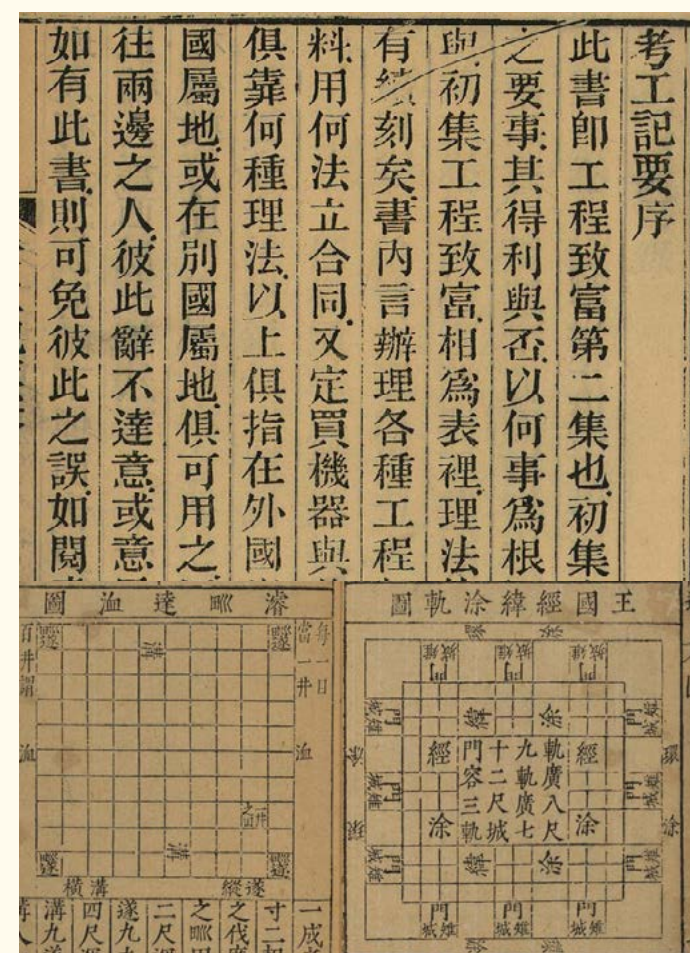 考工記要序
此書卽工程致富第二集也、初集
之要事、其得利與否、以何事爲根
與初集工程致富、相爲表裡、理法
有續刻矣、書內言辦理各種工程
料、用何法立合同、又定買機器與
俱靠何種理法、以上俱指在外國
國屬地、或在別國屬地、俱可用之
往兩邊之人、彼此辭不達意、或意
如有此書、則可免彼此之誤、如閱
王國經緯涂軌圖
門 城雉
門 城雉
門 城雉
環涂
經涂
緯涂
軌廣八尺
九軌廣七
十二尺城
門容三軌
經涂
緯涂
門 城雉
門 城雉
門 城雉
濬甽達洫圖
每一日
當一井
洫
遂
溝
遂
百井謂
洫
遂
溝
遂
縱遂
橫溝
一成
寸二
之伐廣
之甽
二尺深
遂九
四尺深
溝九